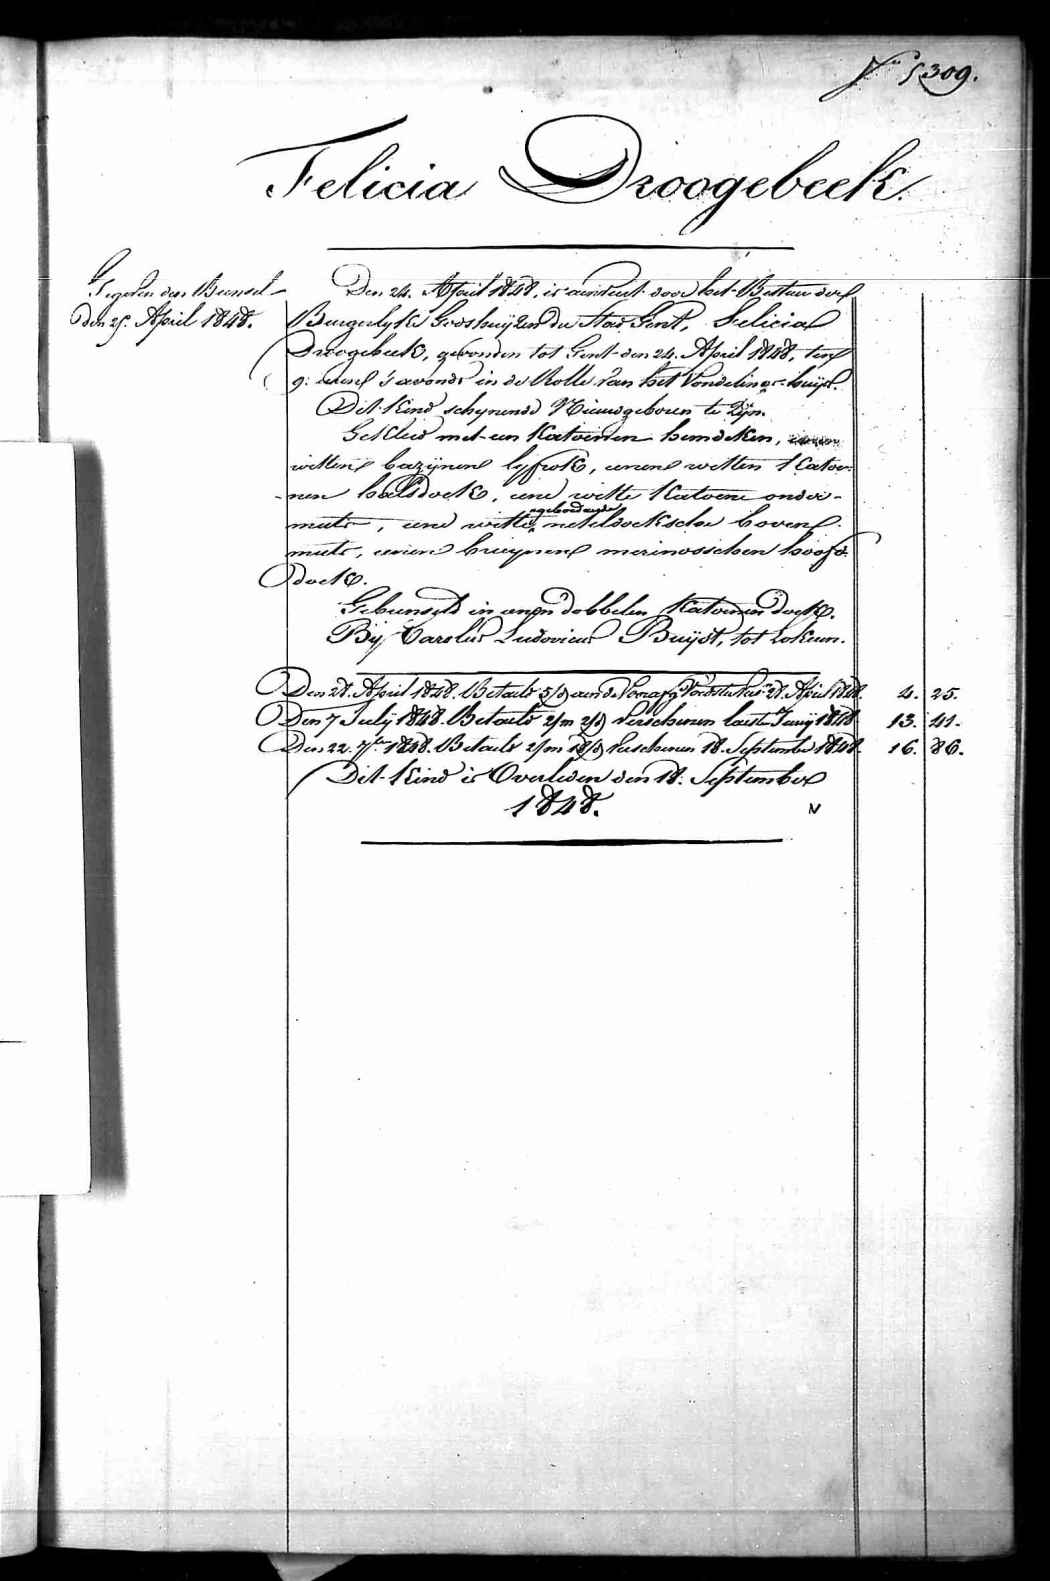 309.
Felicia Droogebeek.
Gegeven den Bunsel
den 25. April 1848.
Den 24. April 1848, is aenveert door het Bestuer der
Burgerlyke Godshuyzen der Stad Gent, Felicia
Droogebeek, gevonden tot Gent den 24. April 1848, ten
9: uren s'avonds in de Rolle van het Vondelings-huys.
Dit Kind schynende Nieuwgeboren te Zyn.
Gekleed met een Katoenen hemdeken,
witten bazynen lyfrok, eenen witten Katoe-
nen halsdoek, eene witte Katoene onder-
muts, eene witte geborduerde neteldoeksche boven
muts, eenen bruynen merinosschen hoofd
doek.
Gebunseld in eenen dobbelen Katoenen doek.
By Carolus Ludovicus Buyst, tot Lokeren.
Den 28. April 1848. Betaeld aen de 28. April 1848. 4. 25.
Den 7 July 1848. Betaeld 2/m verschenen laetsten Juny 1848 13. 41.
Den 22. 7ber 1848. Betaeld 2/m verschenen 18. September 1848. 16. 86.
Dit Kind is Overleden den 18. September
1848.